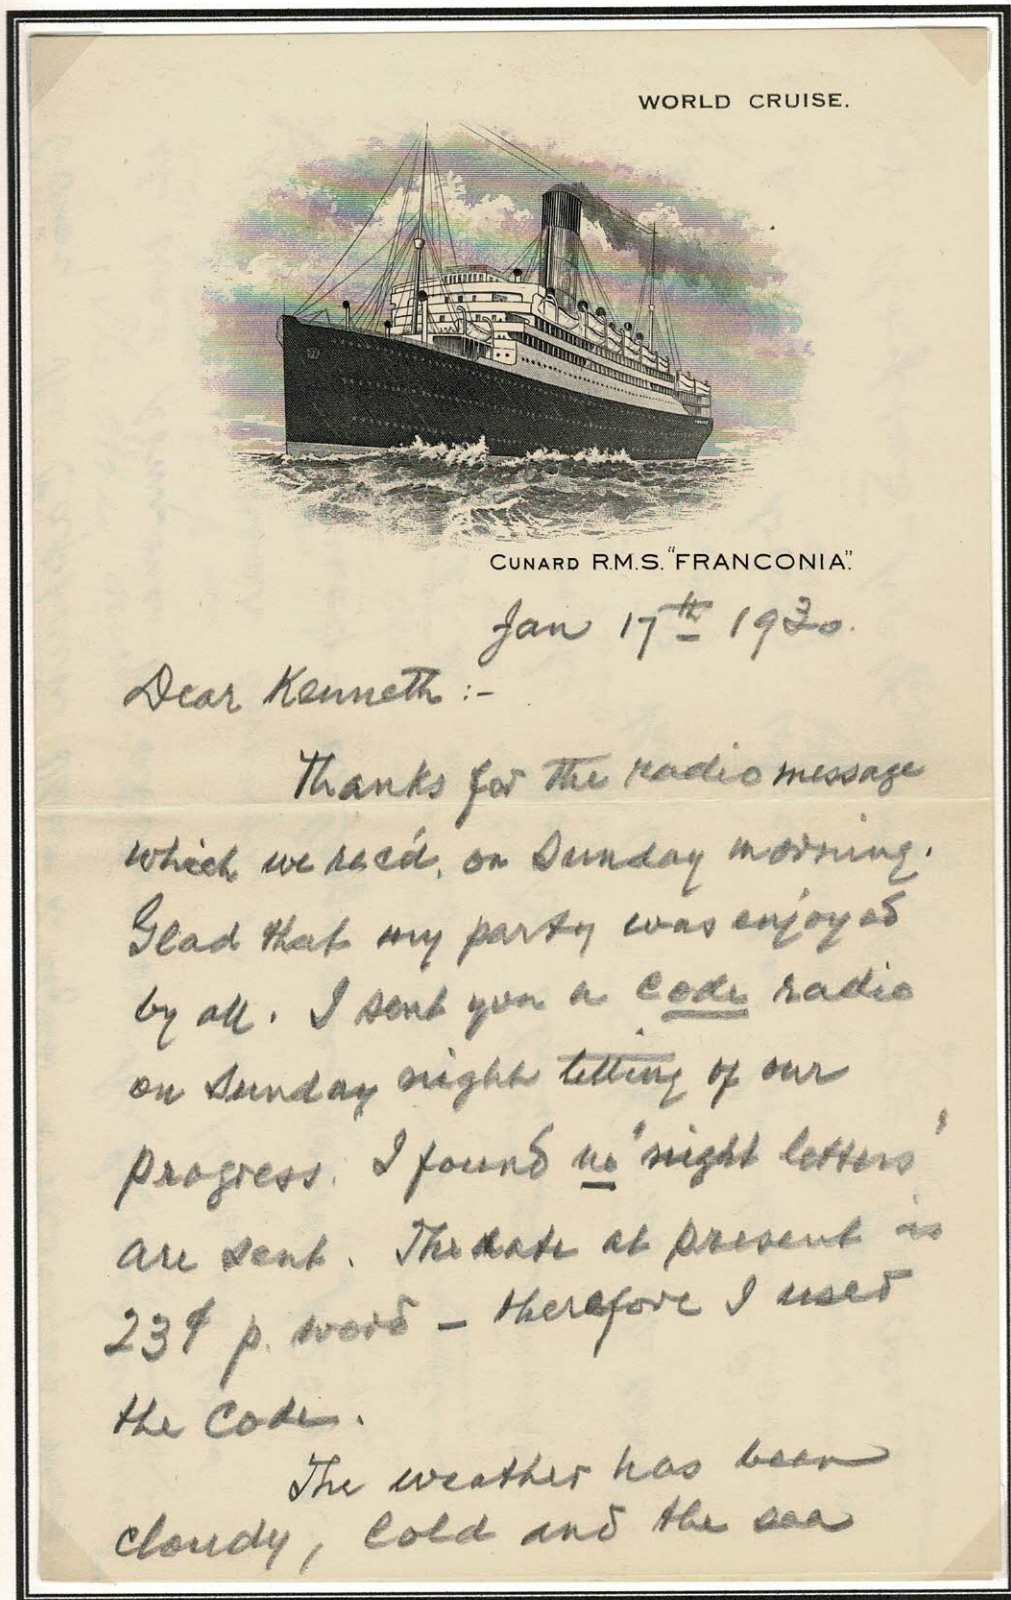 WORLD CRUISE.
CUNARD R.M.S. "FRANCONIA".
Jan 17th 1930.
Dear Kenneth :-
Thanks for the radio message
which we rec'd, on Sunday morning.
Glad that my party was enjoyed
by all. I sent you a code radio
on Sunday night telling of our
progress. I found no 'night letters'
are sent. The rate at present is
23¢ p. word – therefore I used
the Code.
The weather has been
cloudy, Cold and the sea